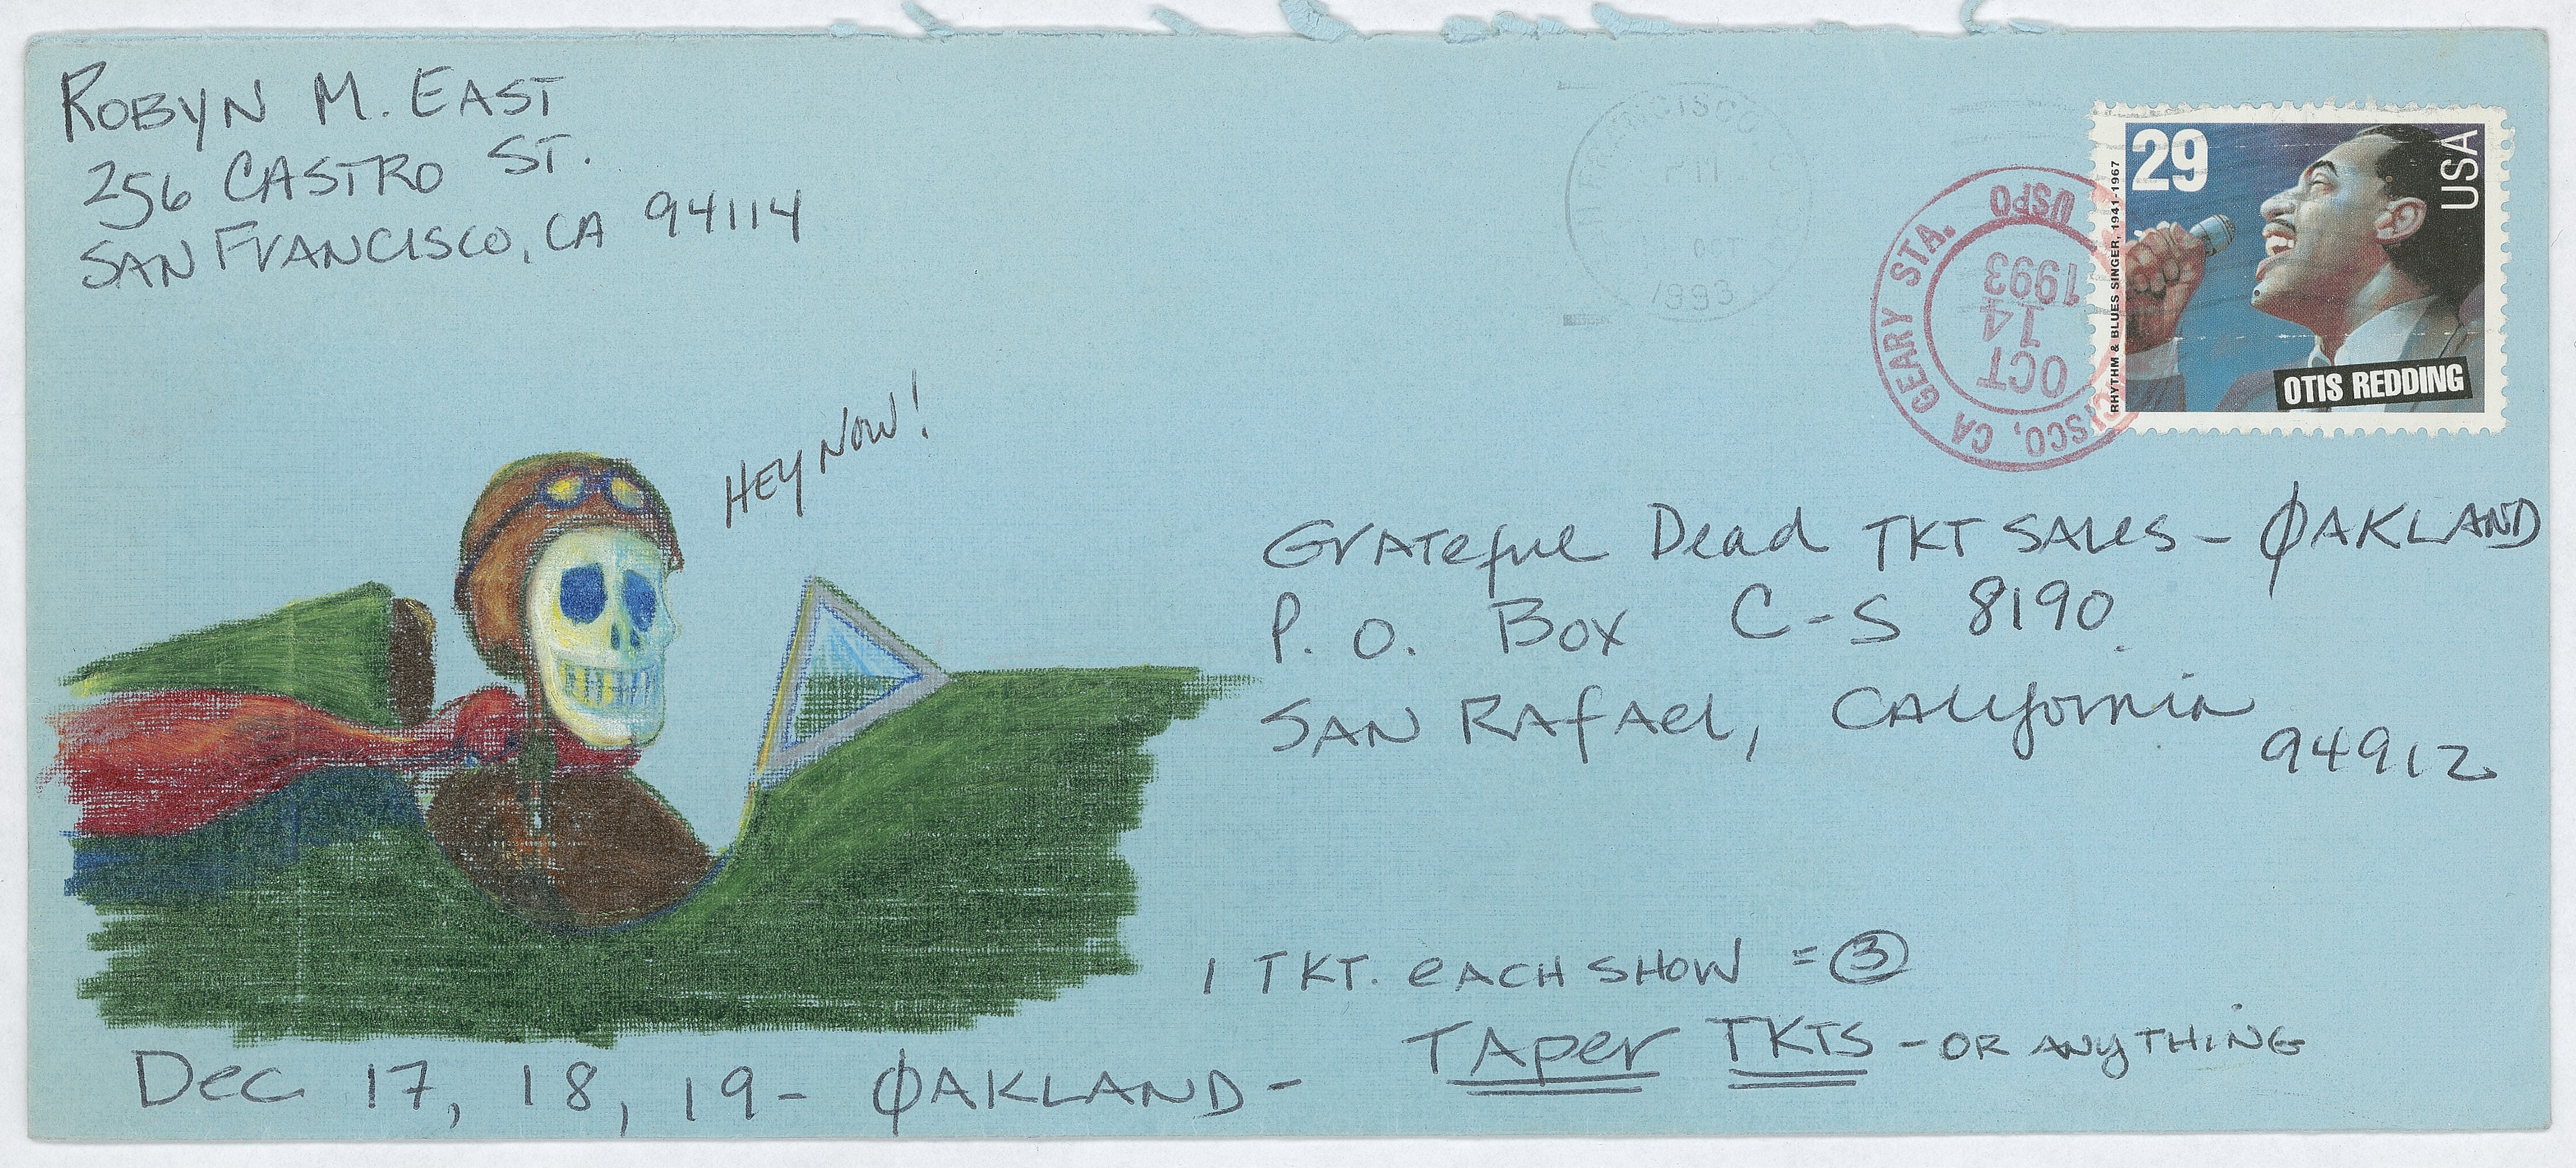 ROBYN M. EAST
256 CASTRO ST.
SAN FRANCISCO, CA 94114
HEY NOW!
NCISCO
PM
OCT
1993
GEARY STA.
USPO
OCT
14
1993
SCO, CA
29
USA
RHYTHM & BLUES SINGER, 1941-1967
OTIS REDDING
Grateful Dead TKT SALES - ØAKLAND
P. O. Box C-S 8190
SAN RAfAel, CALifornia
94912
1 TKT. eACH SHOW = 3
TAper TKTS - OR ANYTHING
Dec 17, 18, 19 - ØAKLAND -